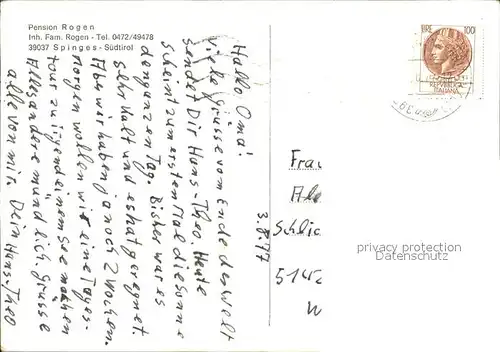 Pension Rogen
Inh. Fam. Rogen - Tel. 0472/49478
39037 Spinges - Südtirol
Hallo, Oma!
viele Grüsse vom Ende der Welt
sendet Dir Hans-Theo. Heute
scheint zum ersten Mal die Sonne
den ganzen Tag. Bisher war es
sehr kalt und es hat geregnet.
Aber wir haben ja noch 2 Wochen.
Morgen wollen wir eine Tages-
tour zu irgendeinem See machen
Alles andere mündlich. Grüsse
alle von mir. Dein Hans-Theo
3.8.77
LIRE 100
REPVBBLICA
ITALIANA
Frau
Schli
privacy protection
Datenschutz